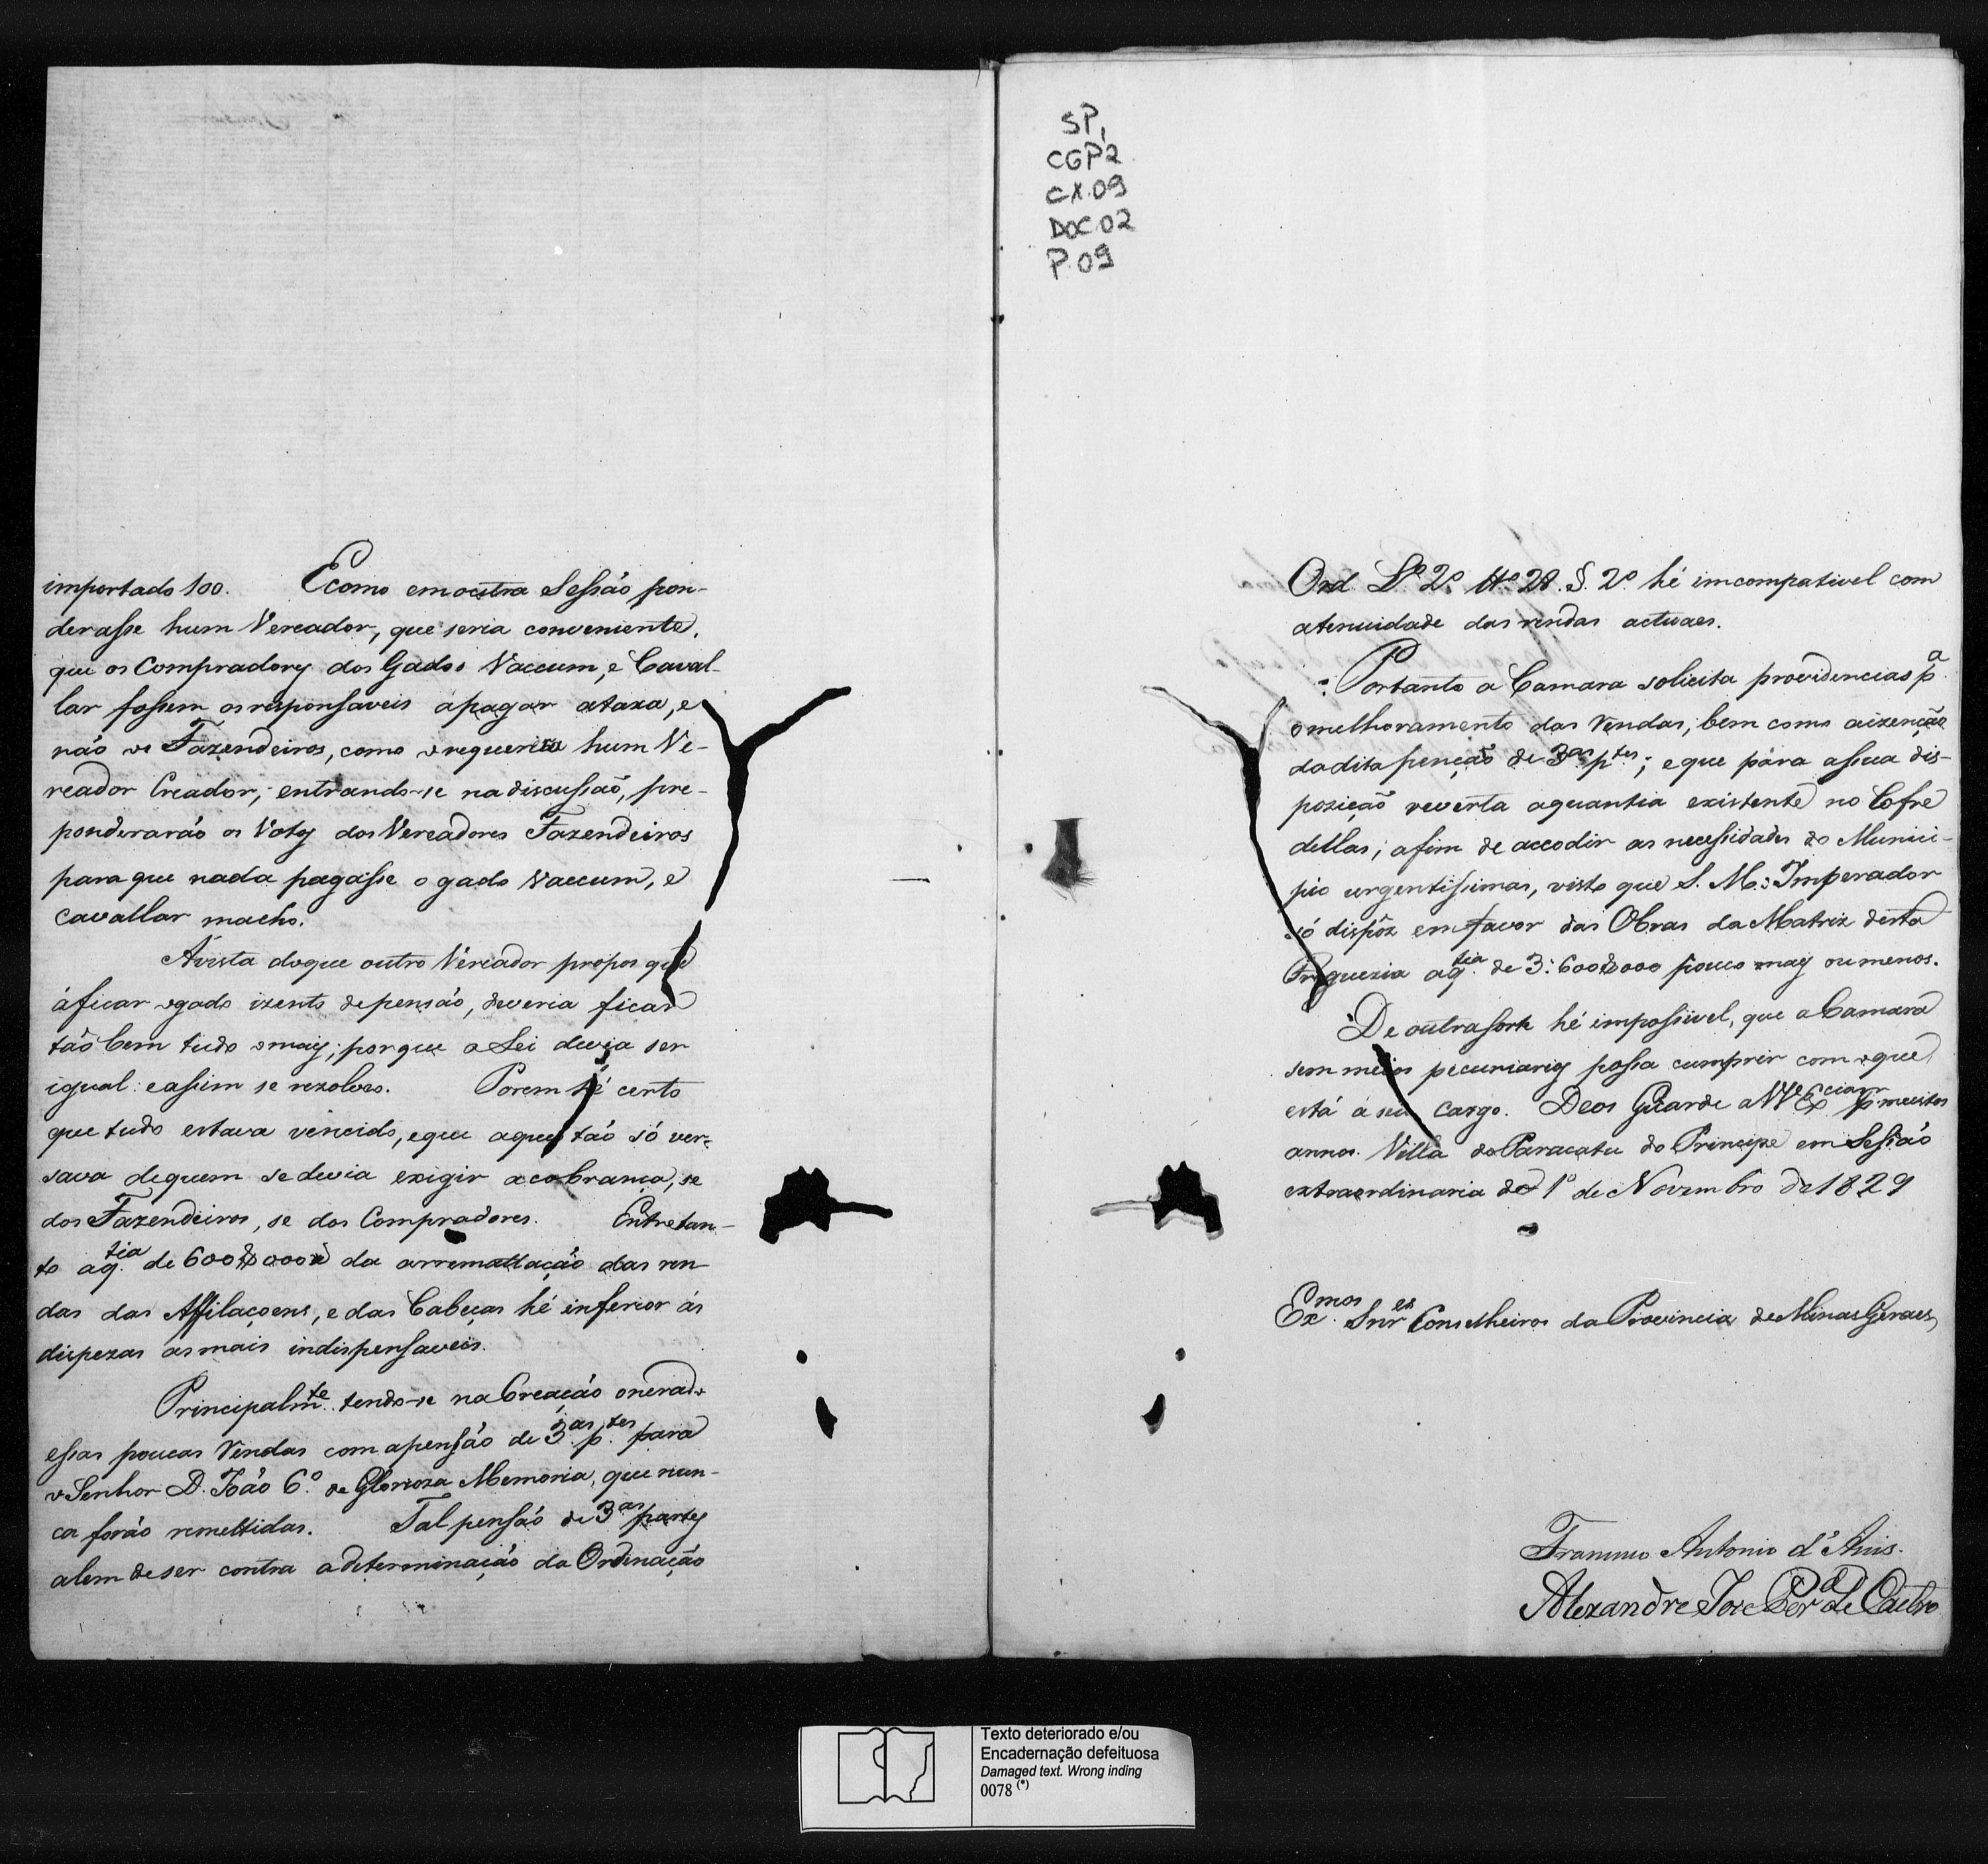 importado 100. Ecomo emoutra Sessão pon-
derasse hum Vereador, que seria conveniente,
que os Compradores dos Gados Vaccum, e Caval-
lar fossem os responsaveis ápagar ataxa, e
não os Fazendeiros, como o requeria hum Ve-
reador Creador; entrando-se na discussão, pre-
ponderarão os Votos dos Vereadores Fazendeiros
para que nada pagasse o gado Vaccum, e
cavallar macho.
Ávista doque outro Vereador propos que
áficar ogado izento depensão, deveria ficar
tãobem tudo omais; porque a Lei devia ser
igual: eassim se rezolveo. Porem hé certo
que tudo estava vencido, eque aquestão só ver-
sava dequem sedevia exigir acobrança, se
dos Fazendeiros, se dos Compradores. Entretan-
to aq.tia de 600$000 da arremattação das ren-
das das Affilaçoens, e das Cabeças hé inferior ás
dispezas as mais indispensaveis.
Principalm.te tendo-se na Creação onerado
essas poucas Rendas com apensão de 3.as p.tes para
o Senhor D. João 6.º de Glorioza Memoria, que nun-
ca forão remettidas. Tal pensão de 3.as partes
alem de ser contra adeterminação da Ordenação
SP,
CGP2
CX.09
DOC.02
P.09
Ord. L.º 2.º tt.º 28. §. 2.º hé imcompativel com
atenuidade das rendas actuaes.
Portanto a Camara solicita providencias p.a
omelhoramento das Rendas, bem como aizenção
dadita penção de 3.as p.tes; eque para assua dis-
posição reverta aquantia existente no Cofre
dellas; afim de accodir as necessidades do Munici-
pio urgentissimas, visto que S. M. Imperador
só dispôz emfavor das Obras da Matriz desta
Freguezia aq.tia de 3:600$000 pouco mais oumenos.
De outrasorte hé impossivel, que a Camara
sem meios pecuniarios possa cumprir com oque
está a seu cargo. Deos Guarde a VV. Ex.cias p.r muitos
annos. Villa do Paracatu do Principe em Sessão
extraordinaria de 1º de Novembro de 1829
Ex.mos Snr.es Conselheiros da Provincia de Minas Geraes
Antonio d'
Alexandre Joze Per.a de Castro
Texto deteriorado e/ou
Encadernação defeituosa
Damaged text. Wrong inding
0078 (*)